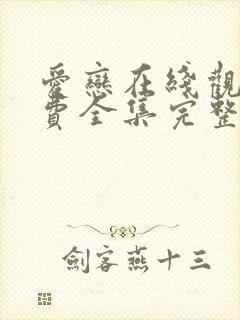 愛戀在綫觀
費全集完整
劍客燕十三